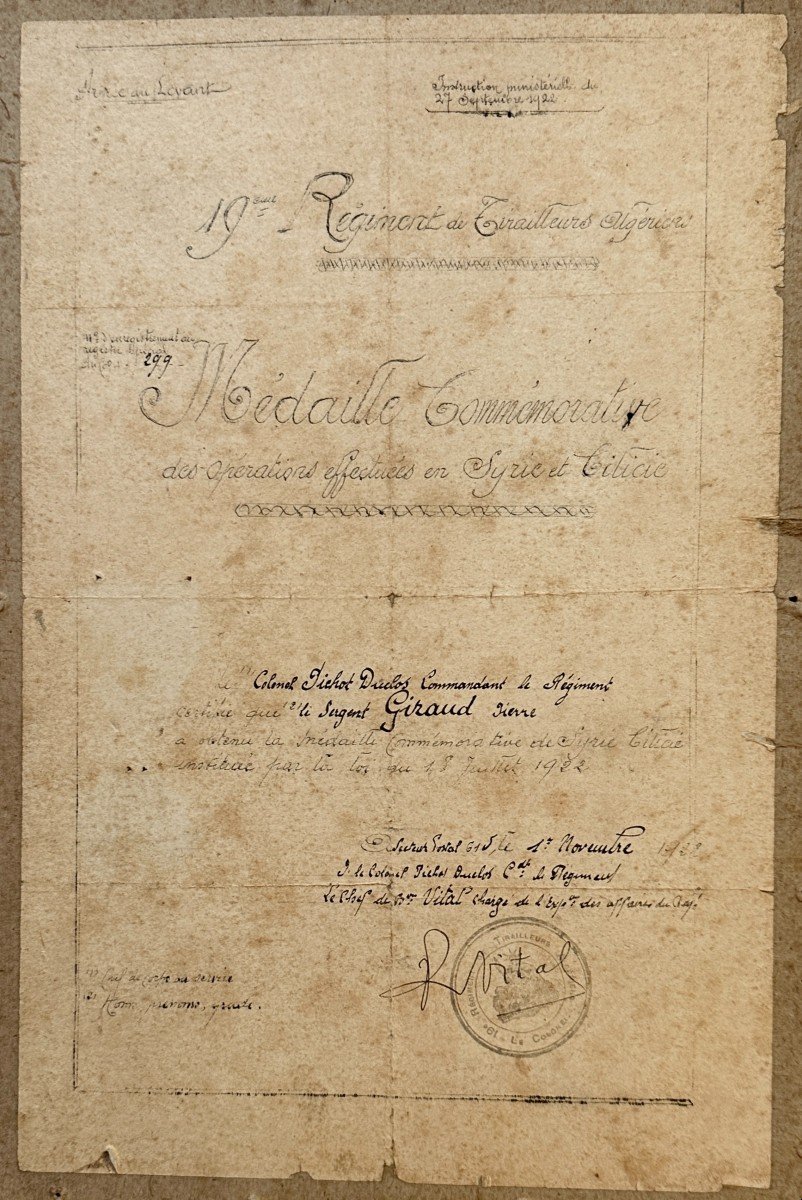 Armée du Levant
Instruction ministérielle du
27 Septembre 1922
19ème Régiment de Tirailleurs Algériens
N° d'enregistrement au
registre
299
Médaille Commémorative
des opérations effectuées en Syrie et Cilicie
Le (1) Colonel Pichot Duclos Commandant le Régiment
certifie que (2) le Sergent Giraud Pierre
a obtenu la Médaille Commémorative de Syrie Cilicie
instituée par la loi du 18 Juillet 1922
Secteur Postal 615, le 1er Novembre 1922
P. le Colonel Pichot Duclos Cdt le Régiment
Le Chef de Bon Vital Chargé de l'Expon des affaires du Régt
R Vital
TIRAILLEURS
19e
LE COLONEL
(1) Chef de Corps ou service
(2) Nom, prénoms, grade.